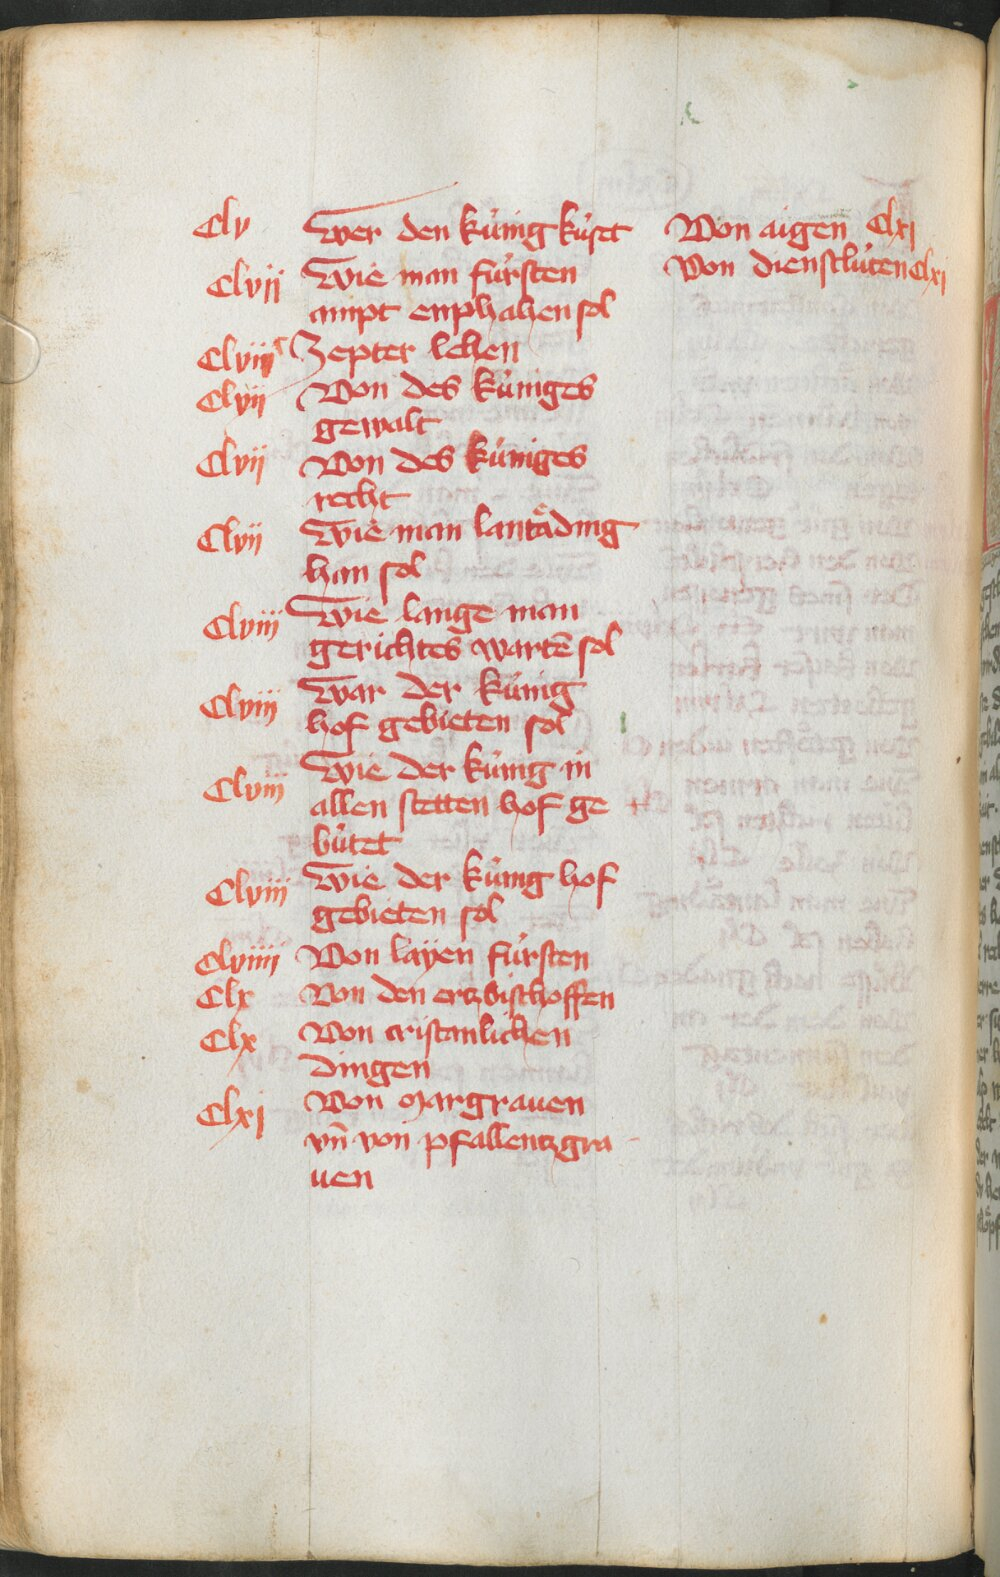 Clv Wer den kúnig kúset
Clvij Wie man fúrsten
ampt enphahen sol
Clviij Zepter lehen
Clvij Von des kúniges
gewalt
Clvij Von des kúniges
recht
Clvij Wie man lantåding
han sol
Clviij Wie lange man
gerichtes wartē sol
Clviij War der kúnig
hof gebieten sol
Clviij Wie der kúnig in
allen stetten hof ge
bútet
Clviij Wie der kúnig hof
gebieten sol
Clviiij Von layen fúrsten
Clx Von den ertzbischoffen
Clx Von cristanlichen
dingen
Clxj Von Margrauen
vn̄ von pfallentzgra
uen
Von aigen Clxj
Von dienstlúten Clxj